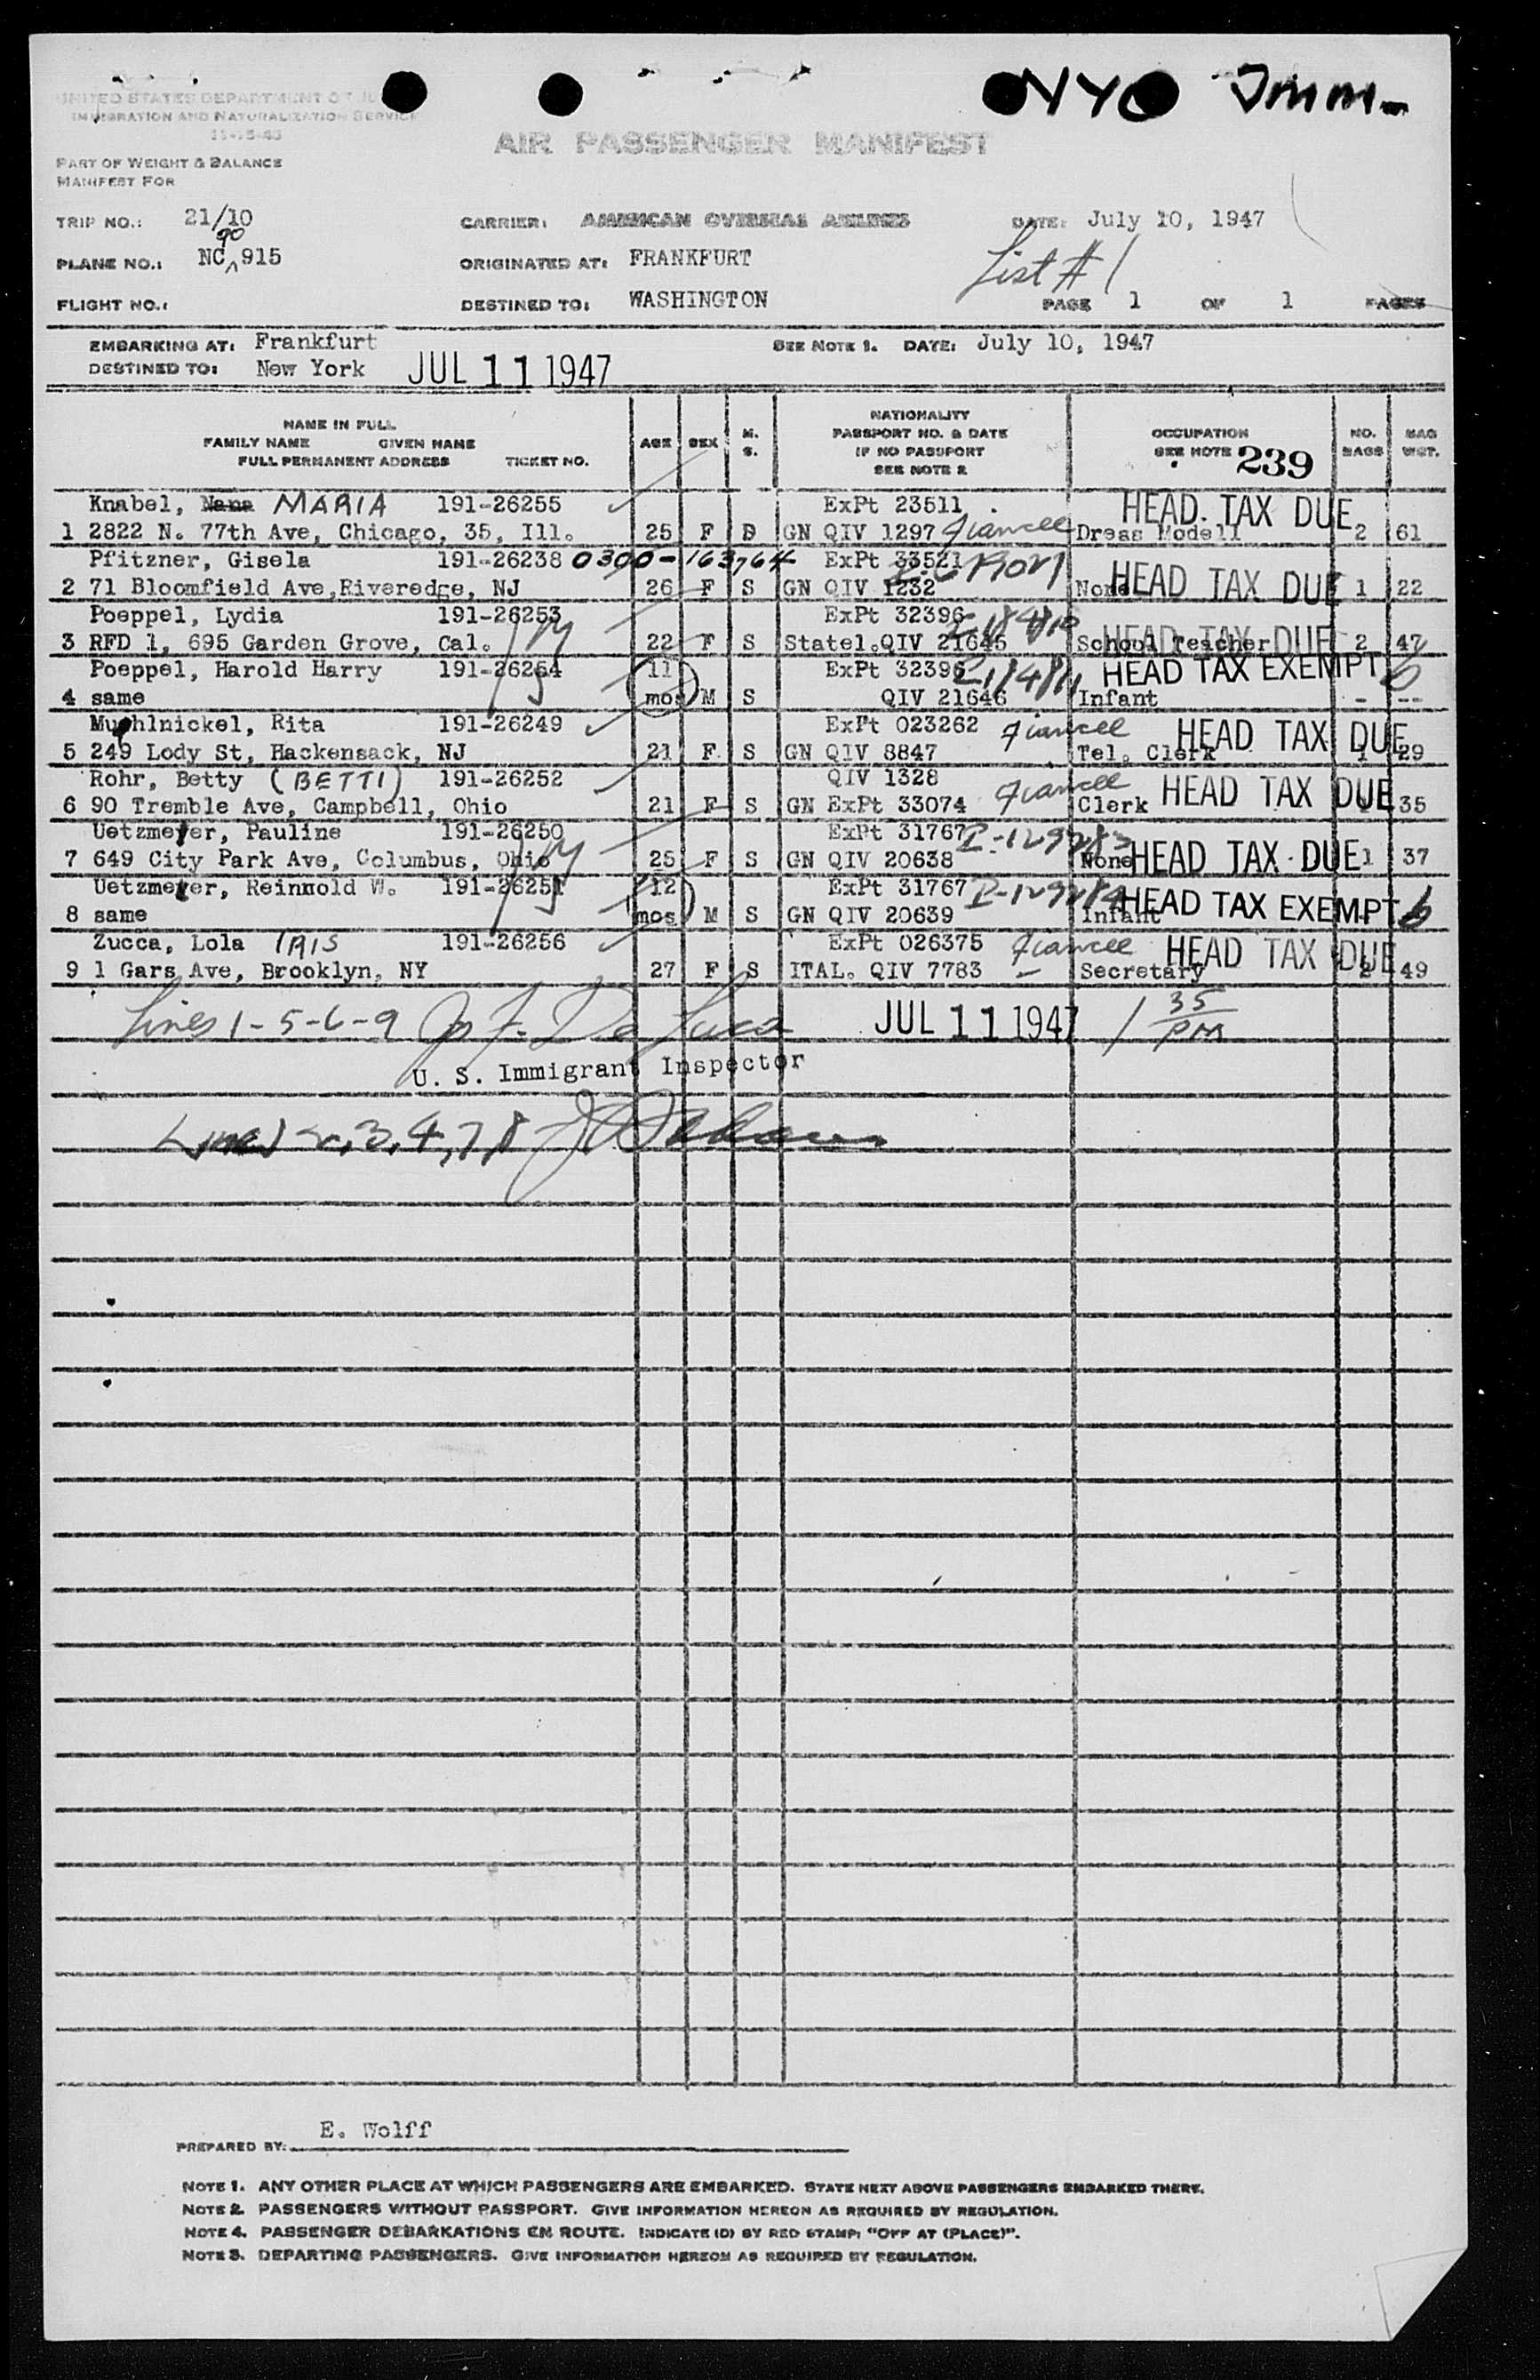 NYC Imm.
UNITED STATES DEPARTMENT OF JU
IMMIGRATION AND NATURALIZATION SERVICE
11-15-43
AIR PASSENGER MANIFEST
PART OF WEIGHT & BALANCE
MANIFEST FOR
TRIP NO.: 21/10 CARRIER: AMERICAN OVERSEAS AIRLINES DATE: July 10, 1947
90
PLANE NO.: NC 915 ORIGINATED AT: FRANKFURT List # 1
FLIGHT NO.: DESTINED TO: WASHINGTON PAGE 1 OF 1 PAGES
EMBARKING AT: Frankfurt SEE NOTE 1. DATE: July 10, 1947
DESTINED TO: New York JUL 11 1947
NAME IN FULL NATIONALITY
FAMILY NAME GIVEN NAME AGE SEX M. S. PASSPORT NO. & DATE OCCUPATION NO. BAGS BAG WGT.
FULL PERMANENT ADDRESS TICKET NO. IF NO PASSPORT SEE NOTE 239
SEE NOTE 2
Knabel, Nana MARIA 191-26255 ExPt 23511 HEAD TAX DUE
1 2822 N. 77th Ave, Chicago, 35, Ill. 25 F D GN QIV 1297 Fiancee Dress Modell 2 61
Pfitzner, Gisela 191-26238 0300-163764 ExPt 33521
2 71 Bloomfield Ave, Riveredge, NJ 26 F S GN QIV 1232 None HEAD TAX DUE 1 22
Poeppel, Lydia 191-26253 ExPt 32396
3 RFD 1, 695 Garden Grove, Cal. 22 F S Statel. QIV 21645 School Teacher HEAD TAX DUE 2 47
Poeppel, Harold Harry 191-26254 11 ExPt 32396 HEAD TAX EXEMPT
4 same mos M S QIV 21646 Infant - --
Muehlnickel, Rita 191-26249 ExPt 023262 Fiancee HEAD TAX DUE
5 249 Lody St, Hackensack, NJ 21 F S GN QIV 8847 Tel. Clerk 1 29
Rohr, Betty (BETTI) 191-26252 QIV 1328 Fiancee HEAD TAX DUE
6 90 Tremble Ave, Campbell, Ohio 21 F S GN ExPt 33074 Clerk 35
Uetzmeyer, Pauline 191-26250 ExPt 31767
7 649 City Park Ave, Columbus, Ohio 25 F S GN QIV 20638 None HEAD TAX DUE 1 37
Uetzmeyer, Reinnold W. 191-26251 12 ExPt 31767 HEAD TAX EXEMPT
8 same mos M S GN QIV 20639 Infant
Zucca, Lola IRIS 191-26256 ExPt 026375 Fiancee HEAD TAX DUE
9 1 Gars Ave, Brooklyn, NY 27 F S ITAL. QIV 7783 Secretary 2 49
Lines 1-5-6-9 JUL 11 1947 1 35 PM
U. S. Immigrant Inspector
Lines 2,3,4,7,8
E. Wolff
PREPARED BY:
NOTE 1. ANY OTHER PLACE AT WHICH PASSENGERS ARE EMBARKED. STATE NEXT ABOVE PASSENGERS EMBARKED THERE.
NOTE 2. PASSENGERS WITHOUT PASSPORT. GIVE INFORMATION HEREON AS REQUIRED BY REGULATION.
NOTE 4. PASSENGER DEBARKATIONS EN ROUTE. INDICATE (D) BY RED STAMP: "OFF AT (PLACE)".
NOTE 3. DEPARTING PASSENGERS. GIVE INFORMATION HEREON AS REQUIRED BY REGULATION.